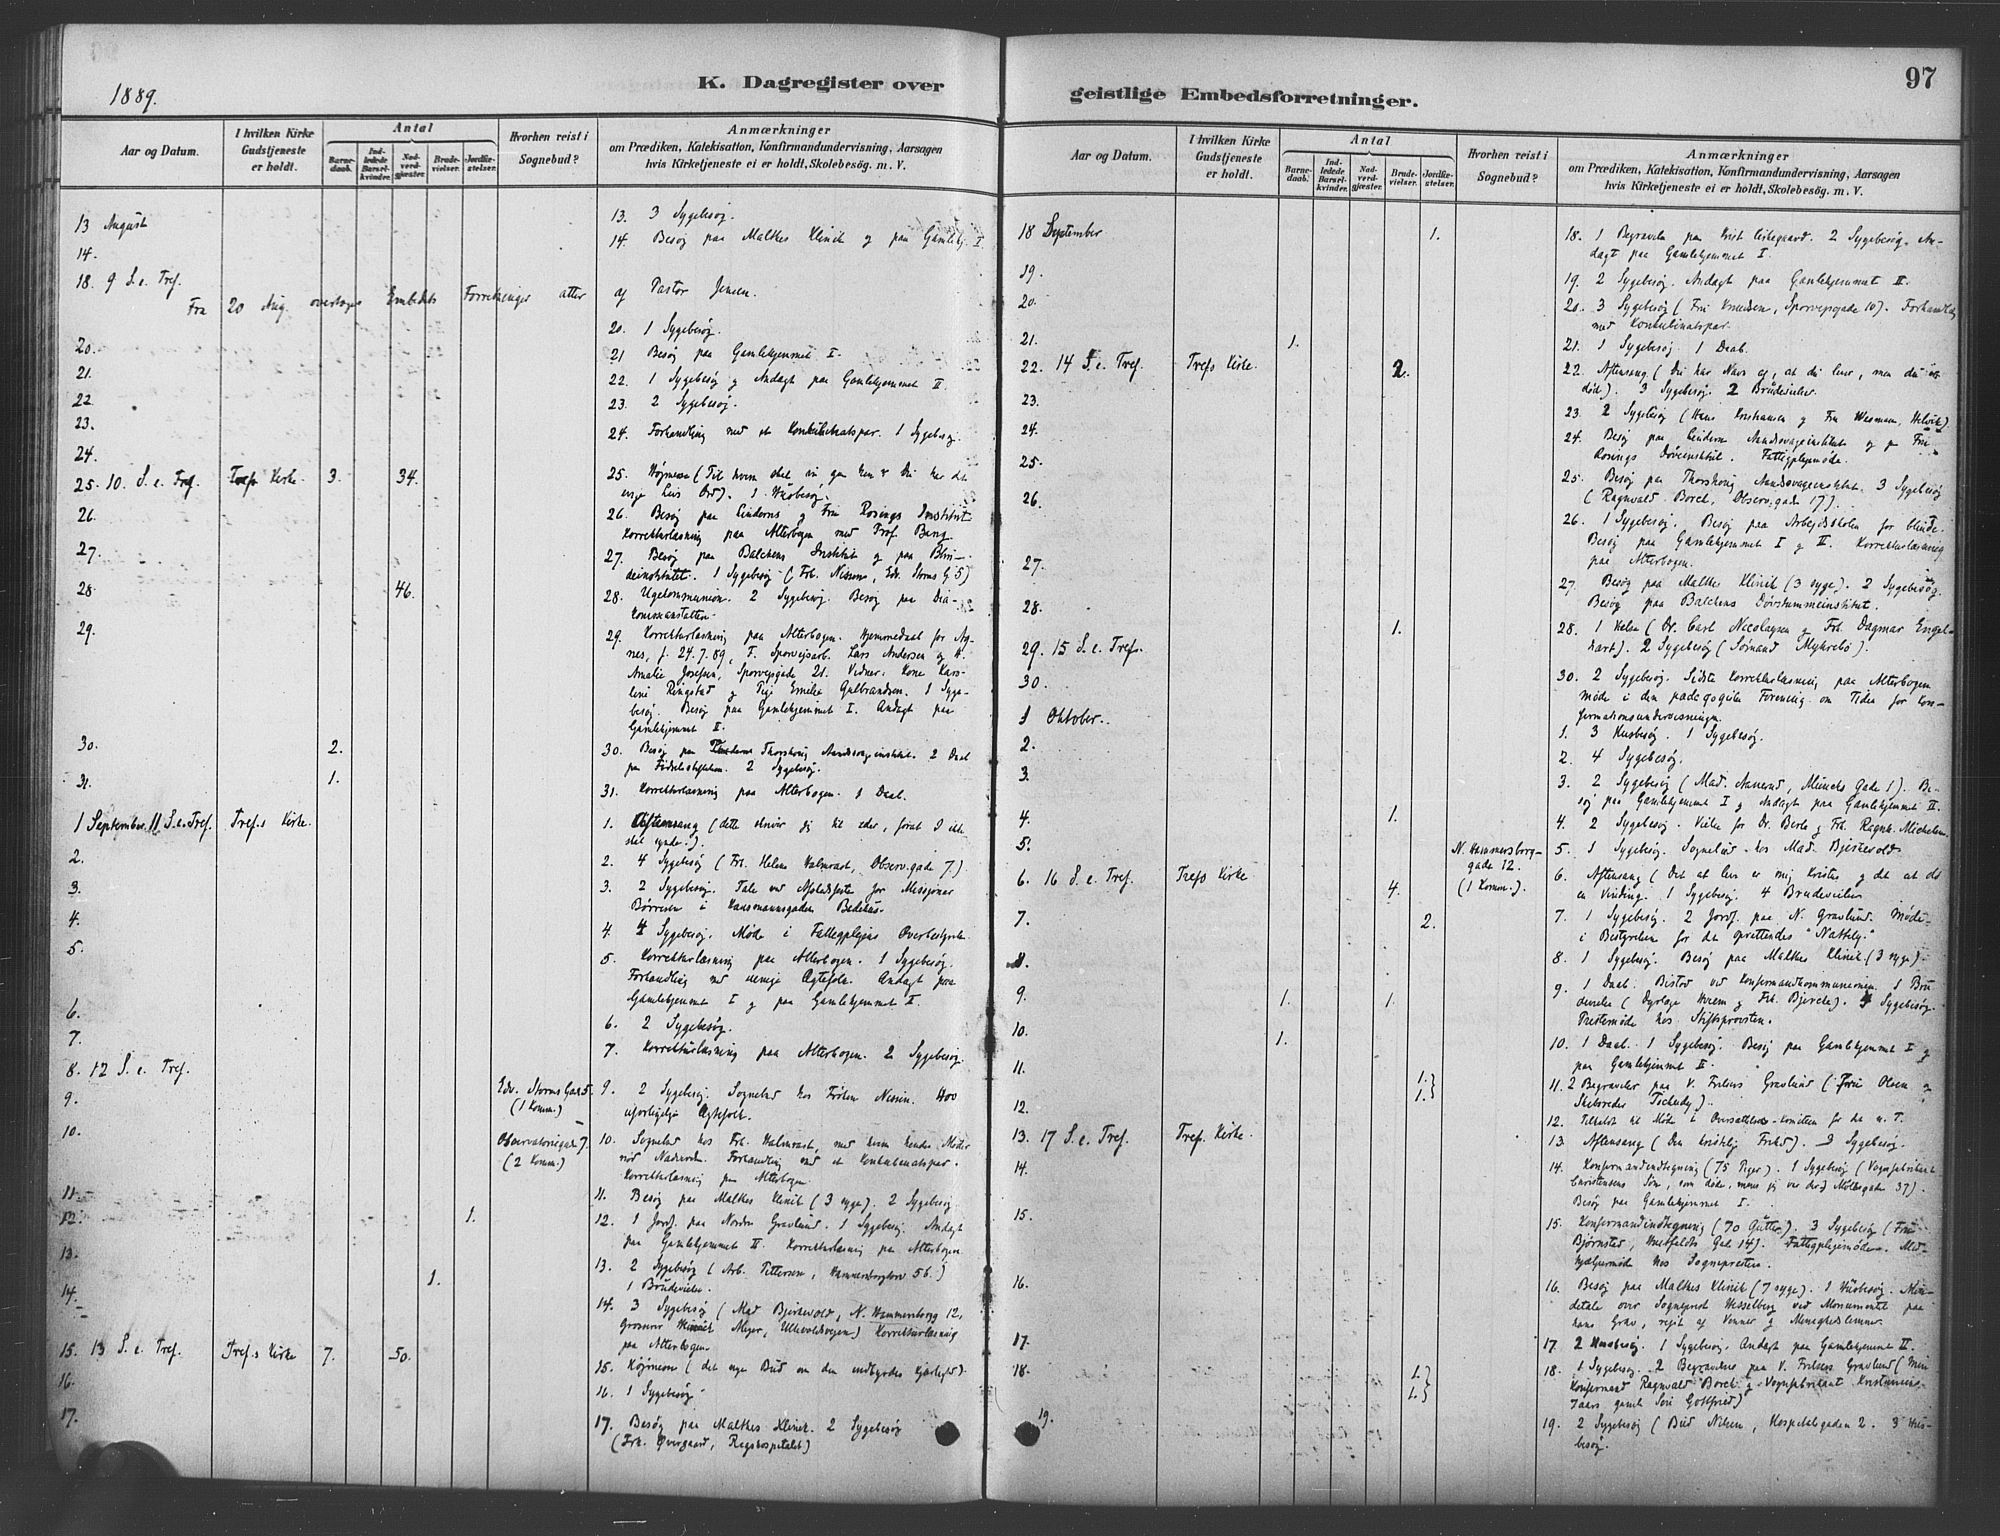 1889.
K. Dagregister over
Aar og Datum.
I hvilken Kirke Gudstjeneste er holdt.
Antal
Barne-daab.
Ind-ledede Barsel-kvinder.
Nad-verd-gjæster.
Brude-vielser.
Jordfæ-stelser.
Hvorhen reist i Sognebud?
Anmærkninger
om Prædiken, Katekisation, Konfirmandundervisning, Aarsagen
hvis Kirketjeneste ei er holdt, Skolebesøg. m. V.
13 August
13. 3 Sygebesøg.
14.
14. Besøg paa Malthes Klinik og paa Gamlehj. I
18. 9 S. e. Tref.
Fra 20 Aug. overtages Embedets Forretninger atter af Pastor Jensen.
20.
20. 1 Sygebesøg.
21.
21 Besøg paa Gamlehjemmet I.
22
22. 1 Sygebesøg og Andagt paa Gamlehjemmet II.
23.
23. 2 Sygebesøg.
24.
24. Forhandling med et Konkubinatspar. 1 Sygebesøg.
25. 10. S. e. Tref. Tref. Kirke. 3. 34.
25. Højmesse (Til hvem skal vi gaa hen? Du har det
evige Livs Ord). 1 Husbesøg.
26.
26. Besøg paa Linderns og Fru Rosings Institut
Korrekturlæsning paa Alterbogen med Prof. Bang.
27.
27. Besøg paa Balchens Institut og paa Blin-
deinstitutet. 1 Sygebesøg (Frk. Nissen, Edv. Storms G. 5)
28 46.
28. Ugekommunion. 2 Sygebesøg. Besøg paa Dia-
konissanstalten.
29.
29. Korrekturlæsning paa Alterbogen. Hjemmedaab for Ag-
nes, f. 24.7.89, F. Sporvejsarb. Lars Andersen og H.
Amalie Josefsen, Sporvejsgade 21. Vidner: Kone Karo-
line Ringstad og Pige Emilie Gulbrandsen. 1 Syge-
besøg. Besøg paa Gamlehjemmet I. Andagt paa
Gamlehjemmet I.
30. 2.
30. Besøg paa Thorshaug Aandssvageinstitut. 2 Daab
paa Fødselsstiftelsen. 2 Sygebesøg.
31. 1.
31. Korrekturlæsning paa Alterbogen. 1 Daab.
1 September. 11 S. e. Tref. Tref.s Kirke.
1. Aftensang (dette skriver jeg til eder, forat I ikke
skal synde.).
2.
2. 4 Sygebesøg (Frk. Helene Halmrast, Observ.gade 7.)
3.
3. 2 Sygebesøg. Tale ved Afskedsfeste for Missionær
Børresen i Hausmannsgadens Bedehus.
4.
4. 4 Sygebesøg. Møde i Fattigplejens Overbestyrelse
5.
5. Korrekturlæsning paa Alterbogen. 1 Sygebesøg.
Forhandling med uenige Ægtefolk. Andagt paa
Gamlehjemmet I og paa Gamlehjemmet II.
6.
6. 2 Sygebesøg.
7.
7. Korrekturlæsning paa Alterbogen. 2 Sygebesøg.
8. 12 S. e. Tref.
9.
Edv. Storms Gade 5. (1 Komm.)
9. 2 Sygebesøg. Sognebud hos Frøken Nissen. Hos
uforligelige Ægtefolk.
10.
Observatoriegade 7. (2 Komm.)
10. Sognebud hos Frk. Halmrast, med hvem hendes Moder
nød Nadverden. Forhandling med et Konkubinatspar.
Korrekturlæsning paa Alterbogen
11.
11. Besøg paa Malthes Klinik (3 syge). 2 Sygebesøg
12. 1.
12. 1 Jordf. paa Nordre Gravlund. 1 Sygebesøg. Andagt
paa Gamlehjemmet II. Korrekturlæsning paa Alterbogen.
13. 1.
13. 2 Sygebesøg (Arb. Pettersen, Hammersborgtorv 56.)
1 Brudevielse.
14.
14. 3 Sygebesøg (Mad Bjerkevold, N. Hammersborg 12,
Grosserer Meyer, Ullevoldsvejen) Korrekturlæsning
paa Alterbogen
15. 13 S. e. Tref. Tref.s Kirke 7. 50.
15. Højmesse (det nye Bud om den indbyrdes Kjærlighed).
16.
16. 1 Sygebesøg.
17.
17. Besøg paa Malthes Klinik. 2 Sygebesøg
(Frk. Overgaard, Rigshospitalet)
geistlige Embedsforretninger.
97
Aar og Datum.
I hvilken Kirke Gudstjeneste er holdt.
Antal
Barne-daab.
Ind-ledede Barsel-kvinder.
Nad-verd-gjæster.
Brude-vielser.
Jordfæ-stelser.
Hvorhen reist i Sognebud?
Anmærkninger
om Prædiken, Katekisation, Konfirmandundervisning, Aarsagen
hvis Kirketjeneste ei er holdt, Skolebesøg. m. V.
18 September 1.
18. 1 Begravelse paa Krist Kirkegaard. 2 Sygebesøg. An-
dagt paa Gamlehjemmet I.
19.
19. 2 Sygebesøg. Andagt paa Gamlehjemmet II.
20.
20. 3 Sygebesøg (Fru Knudsen, Sporvejsgade 10). Forhandling
med Konkubinatspar.
21. 1.
21. 1 Sygebesøg. 1 Daab.
22. 14 S. e. Tref. Trefs Kirke. 2.
22. Aftensang (Du har Navn af, at du lever, men du er
død). 3 Sygebesøg. 2 Brudevielser.
23.
23. 2 Sygebesøg (Hans Kristiansen og Fru Wasmann,
24.
24. Besøg paa Lindern Aandssvageinstitut og paa Fru
Rosings Døveinstitut. Fattigplejemøde.
25.
25. Besøg paa Thorshaug Aandssvageinstitut. 3 Sygebesøg
(Ragnvald Borch, Observ.gade 17).
26.
26. 1 Sygebesøg. Besøg paa Arbejdsskolen for blinde.
Besøg paa Gamlehjemmet I og II. Korrekturlæsning
paa Alterbogen.
27.
27. Besøg paa Malthes Klinik (3 syge). 2 Sygebesøg.
Besøg paa Balchens Døvstummeinstitut.
28. 1.
28. 1 Vielse (Dr. Carl Nicolaysen og Frk. Dagmar Engel-
hart). 2 Sygebesøg (Sømand Myhrebø).
29. 15 S. e. Tref.
30.
30. 2 Sygebesøg. Sidste Korrekturlæsning paa Alterbogen
møde i den pædagogiske Forening om Tiden for Kon-
firmationsundervisningen.
1 Oktober.
1. 3 Husbesøg. 1 Sygebesøg.
2.
2. 4 Sygebesøg.
3.
3. 2 Sygebesøg (Mad. Naverud, Munchs Gade 1). Be-
søg paa Gamlehjemmet I og Andagt paa Gamlehjemmet II.
4. 1.
4. 2 Sygebesøg. Vielse for Dr. Berle og Frk. Ragnh. Michelsen
5.
N. Hammersborg-gade 12. (1 Komm.).
5. 1 Sygebesøg. Sognebud hos Mad. Bjerkevold
6. 16 S. e. Tref. Trefs Kirke 4.
6. Aftensang (Det at leve er mig Kristus og det at dø
en Vinding. 1 Sygebesøg. 4 Brudevielser
7. 2.
7. 1 Sygebesøg. 2 Jordf. paa N. Gravlund. Møde
i Bestyrelsen for det oprettendes "Nattely."
8.
8. 1 Sygebesøg. Besøg paa Malthes Klinik (3 syge).
9. 1. 1.
9. 1 Daab. Bistod ved Konfirmandkommunionen. 1 Bru-
devielse (Dyrlæge Hvem og Frk. Bjercke). 4 Sygebesøg.
Prestemøde hos Stiftsprovsten.
10. 1.
10. 1 Daab. 1 Sygebesøg. Besøg paa Gamlehjemmet I og
paa Gamlehjemmet II.
11. 1. 1.}
11. 2 Begravelser paa V. Frelsers Gravlund (Fru Olsen og
Skibsreder Tschudy).
12.
12. Tilkaldt til Møde i Oversættelses-Komiteen for det n. T.
13. 17 S. e. Tref. Tref. Kirke.
13. Aftensang (Den kristelige Frihed). 3 Sygebesøg.
14.
14. Konfirmandindtegning (75 Piger). 1 Sygebesøg (Vognfabrikant
Christensens Søn, som døde, mens jeg var der) Møllergade 37).
Besøg paa Gamlehjemmet I.
15.
15. Konfirmandindtegning (70 Gutter). 3 Sygebesøg (Fru
Bjørnstad, Huitfeldts Gade 14). Fattigplejemøde. Med-
hjælpermøde hos Sognepresten.
16.
16. Besøg paa Malthes Klinik (7 syge). 1 Husbesøg. Min-
detale over Sogneprest Hesselberg ved Monumentet paa
hans Grav, rejst af Venner og Menighedslemmer.
17.
17. 2 Husbesøg. 1 Sygebesøg. Andagt paa Gamlehjemmet II.
18. 1. 1.}
18. 1 Sygebesøg. 2 Begravelser paa V. Frelsers Gravlund (Min
Konfirmand Ragnvald Borch og Vognfabrikant Kristensens
7 aars gamle Søn Gottfred)
19.
19. 2 Sygebesøg (Bud Nilsen, Hospitalsgaden 2. 3 Hus-
besøg.